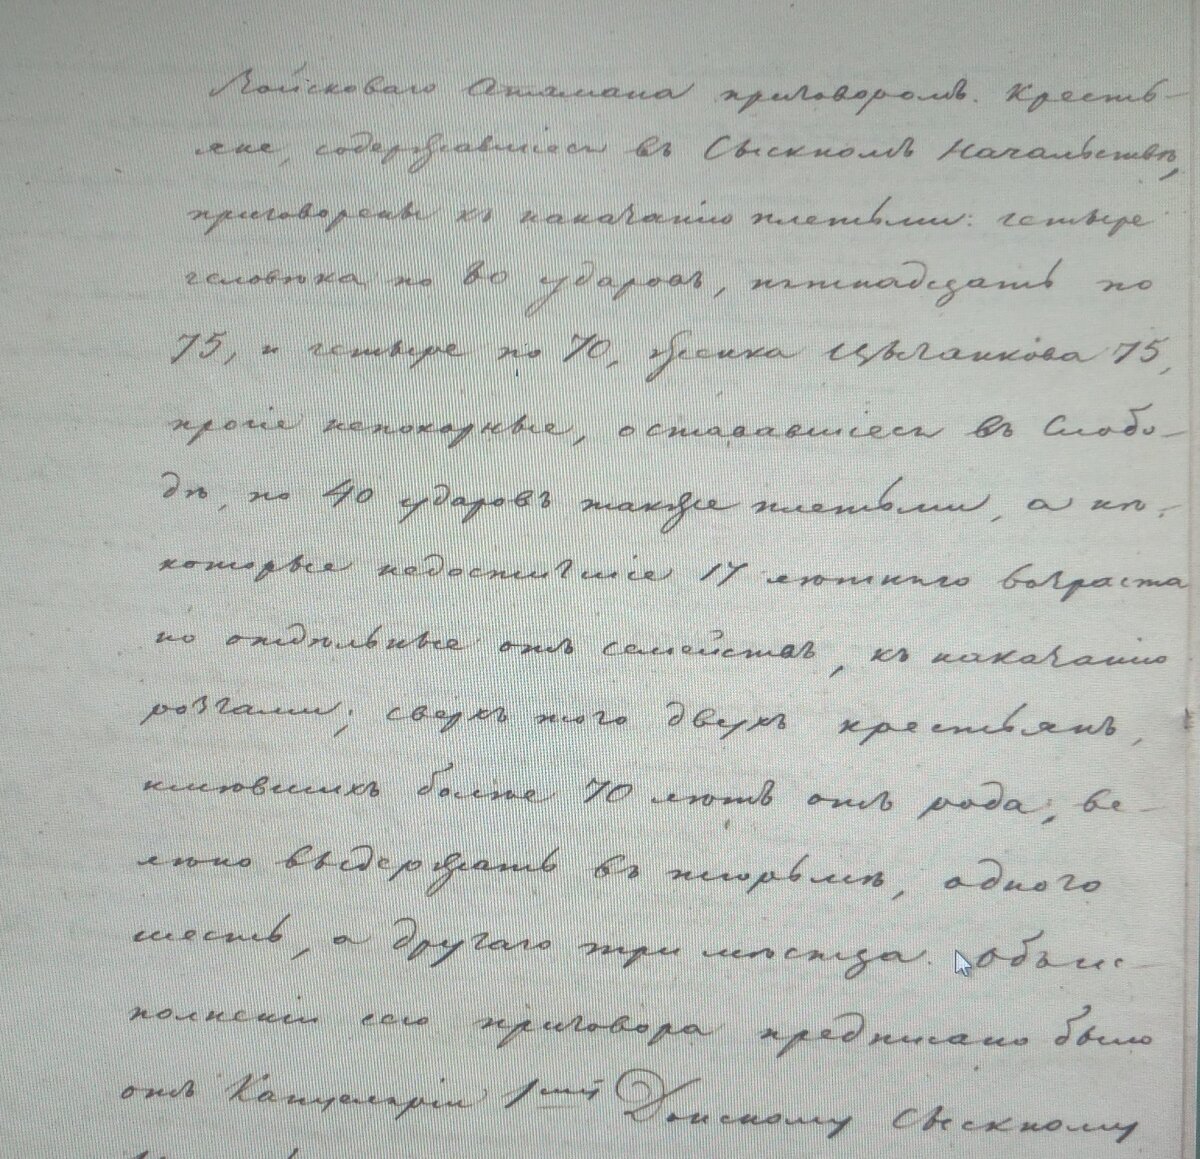 Войсковаго Атамана приговоромъ. Кресть-
яне, содержавшіеся въ Сыскномъ Начальствѣ,
приговорены къ наказанію плетьми: четыре
человѣка по 80 ударовъ, пятнадцать по
75, и четыре по 70, женка Цыганкова 75,
прочіе непокорные, остававшіеся въ Слобо-
дѣ, по 40 ударовъ также плетьми, а нѣ-
которые недостигшіе 17 лѣтняго возраста
но отдѣльные отъ семействъ, къ наказанію
розгами; сверхъ того двухъ крестьянъ,
имѣвшихъ болѣе 70 лѣтъ отъ рода, ве-
лѣно выдержать въ тюрьмѣ, одного
шесть, а другаго три мѣсяца. Объ ис-
полненіи сего приговора предписано было
отъ Канцеляріи 1му Донскому Сыскному